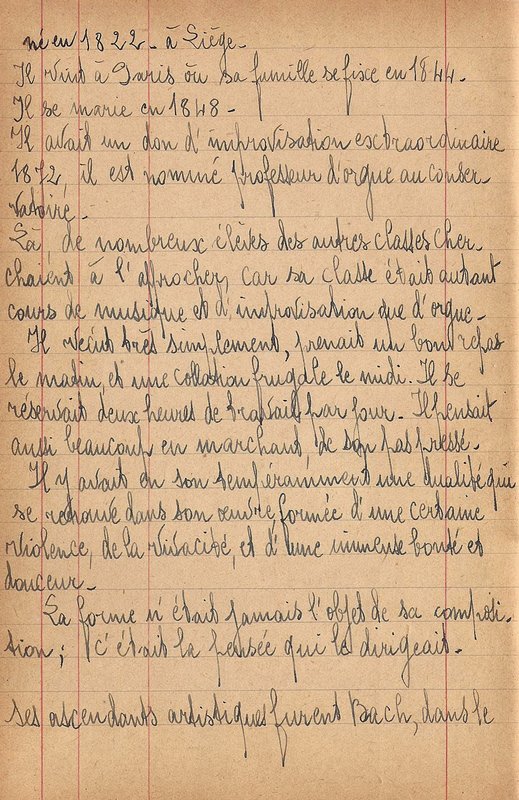 né en 1822 - à Liège -
Il vint à Paris où sa famille se fixe en 1844 -
Il se marie en 1848 -
Il avait un don d'improvisation extraordinaire
1872, il est nommé professeur d'orgue au conser-
vatoire -
Là, de nombreux élèves des autres classes cher-
chaient à l'approcher, car sa classe était autant
cours de musique et d'improvisation que d'orgue -
Il vécut très simplement, prenait un bon repas
le matin, et une collation frugale le midi. Il se
réservait deux heures de travail par jour. Il pensait
aussi beaucoup en marchant, de son pas pressé -
Il y avait en son tempéramment une dualité qui
se retrouve dans son œuvre formée d'une certaine
violence, de la vivacité, et d'une immense bonté et
douceur -
La forme n'était jamais l'objet de sa composi-
tion ; c'était la pensée qui le dirigeait -
ses ascendants artistiques furent Bach, dans le